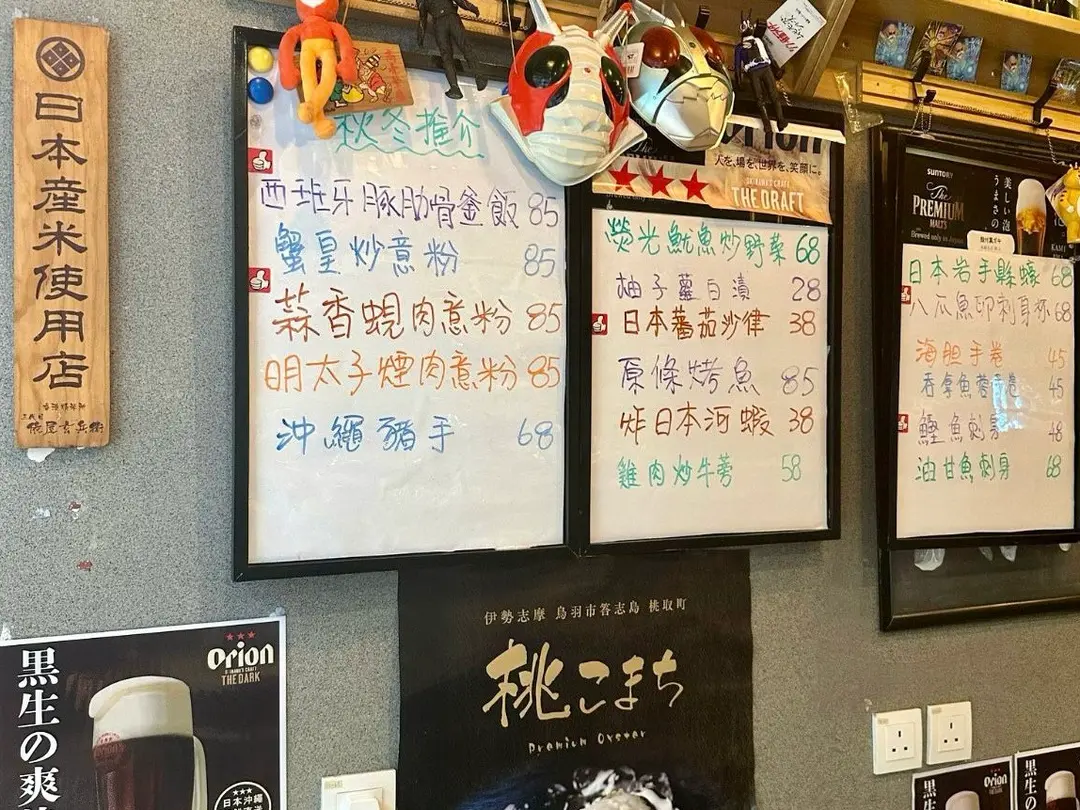 日本産米使用店
秋冬推介
西班牙豚肋骨釜飯 85
蟹皇炒意粉 85
蒜香蜆肉意粉 85
明太子煙肉意粉 85
沖繩豬手 68
人を、場を、世界を、笑顔に。
THE DRAFT
熒光魷魚炒野菜 68
柚子蘿白漬 28
日本蕃茄沙律 38
原條烤魚 85
炸日本河蝦 38
雞肉炒牛蒡 58
SUNTORY
The
PREMIUM
MALT'S
美しい泡
うまさの
日本岩手縣蠔 68
八爪魚卵刺身杯 68
海胆手卷 45
吞拿魚蓉手卷 45
鰹魚刺身 48
油甘魚刺身 68
伊勢志摩 鳥羽市答志島 桃取町
桃こまち
Premium Oyster
Orion
THE DARK
黒生の爽
日本沖縄
Orion
黒生の
黒生